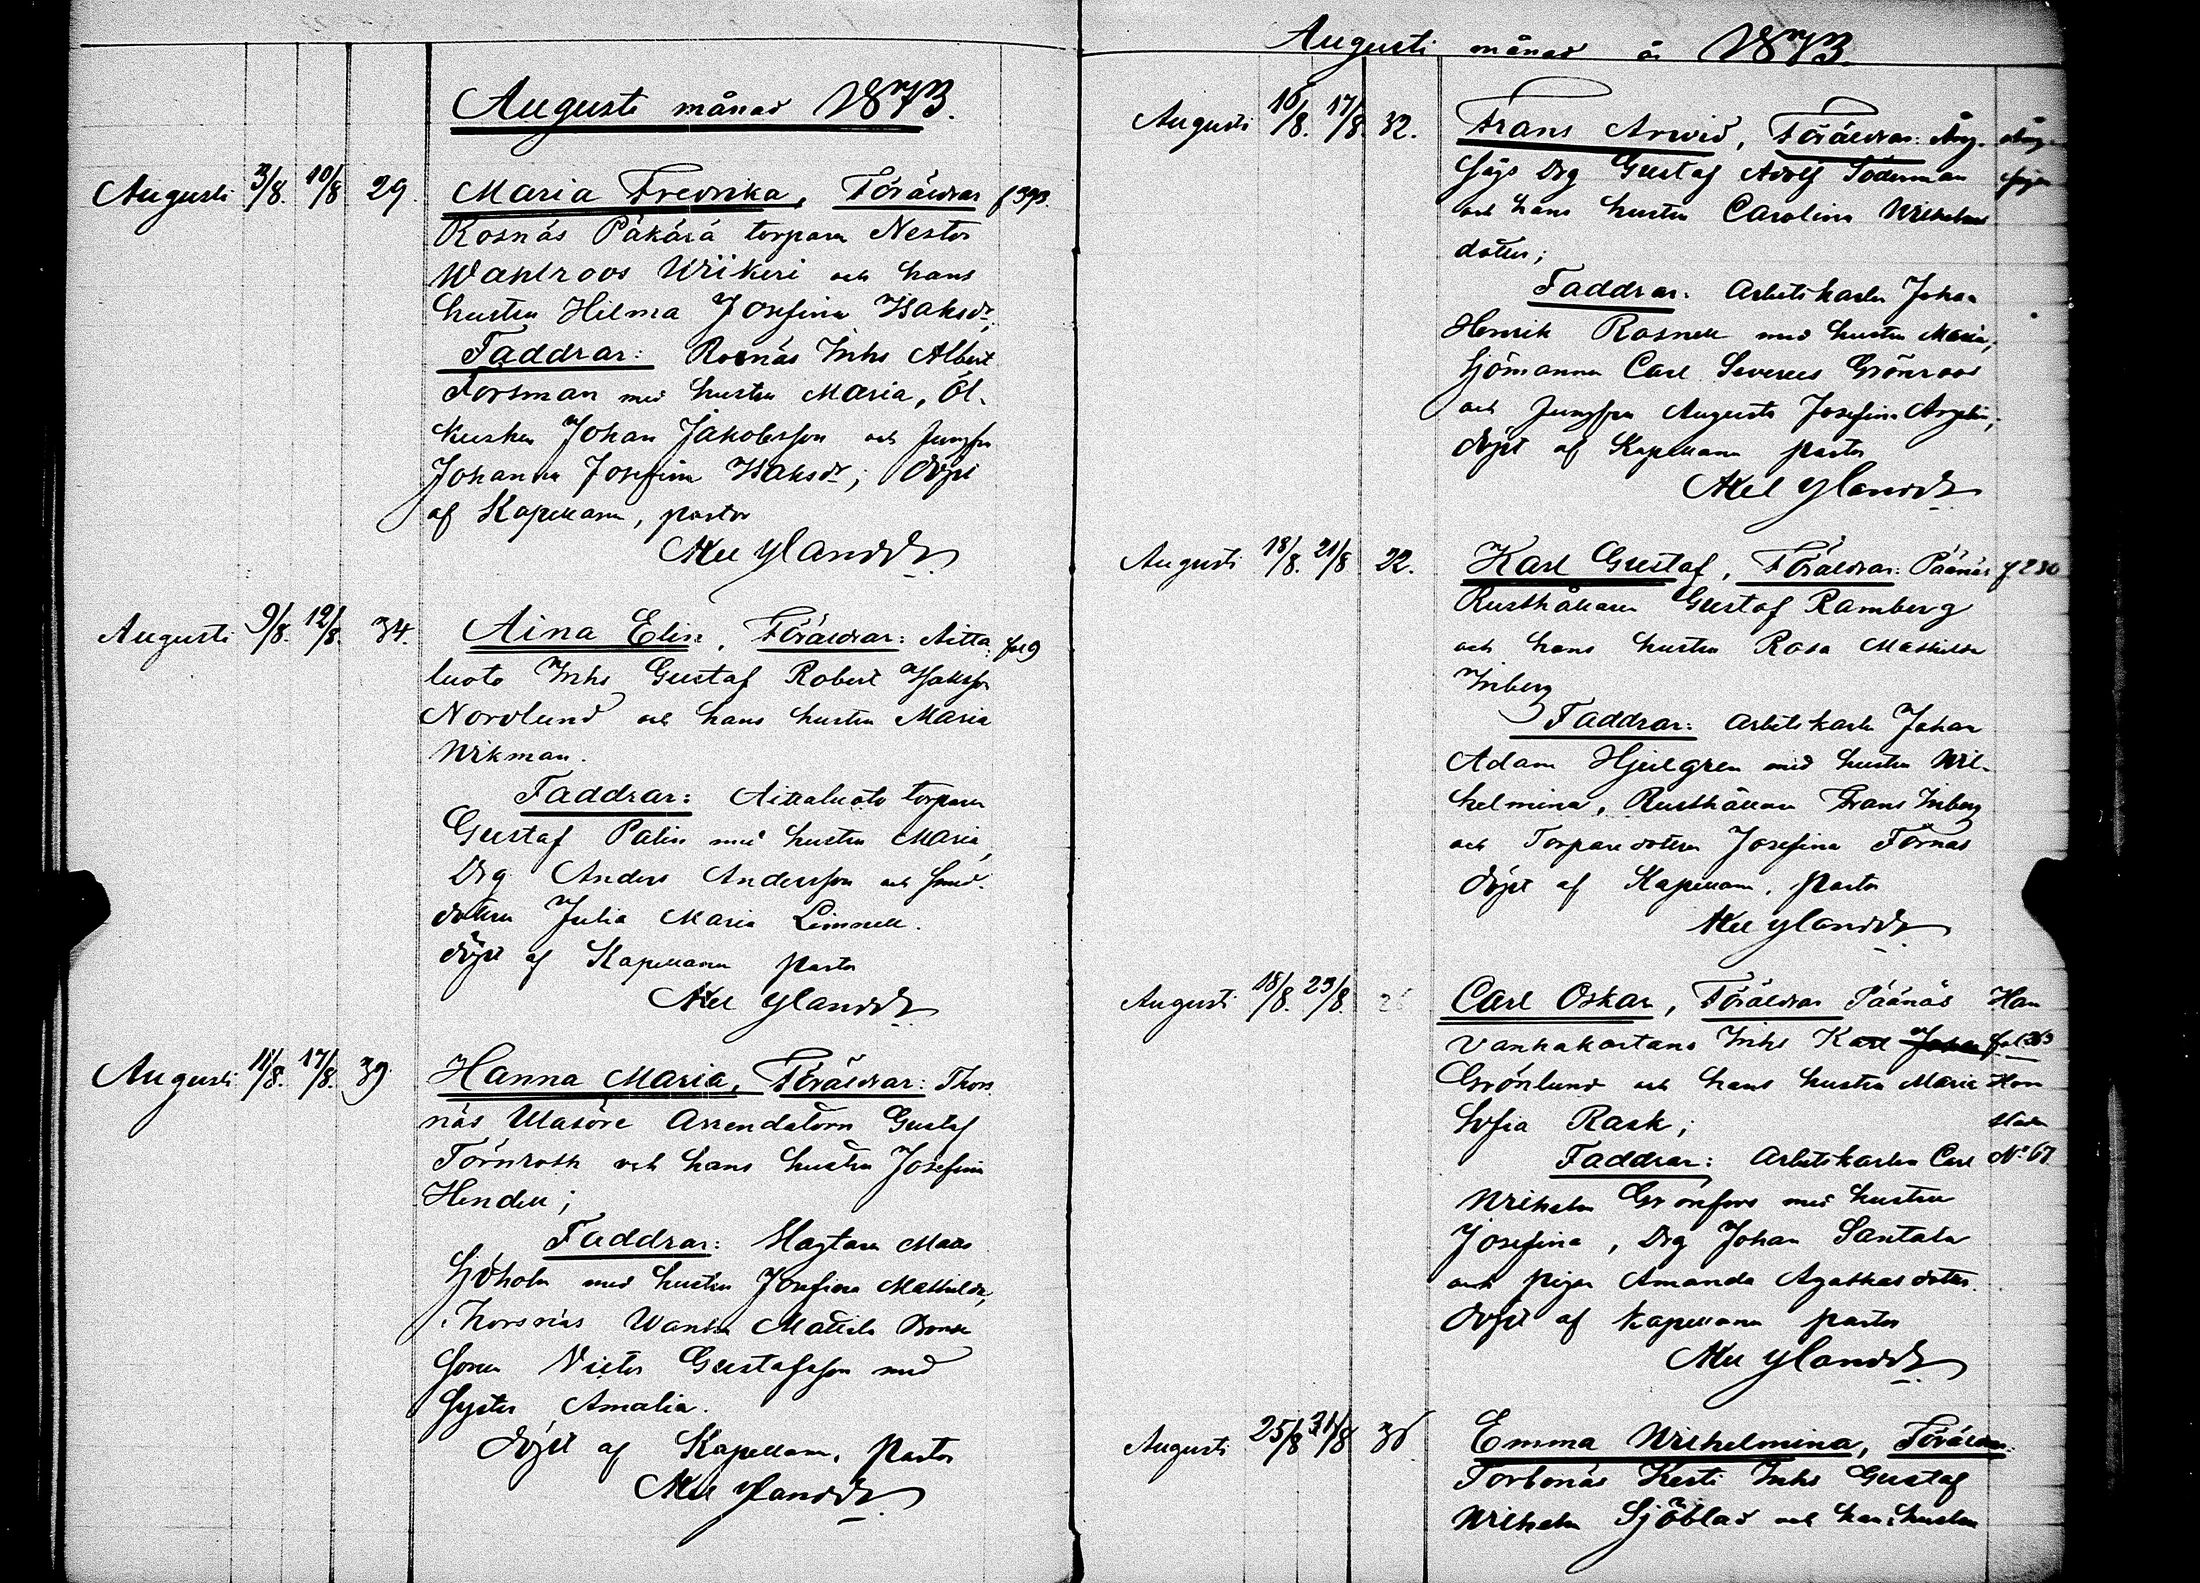 Augusti månad 1873.
Augusti 3/8. 10/8 29. Maria Fredrika, Föräldrar f 393.
Rosnäs Päkärä torparn Nestor
Wahlroos Wiikeri och hans
hustru Hilma Josefina Isaksdr;
Faddrar: Rosnäs Inhs Albert
Forsman med hustru Maria,
kusken Johan Jakobsson och Jungfr
Johanna Josefina Isaksdr; döpt
af Kapellanen, pastor
Axel Ylander
Augusti 9/8. 12/8. 34. Aina Elise, Föräldrar: Aitta- fol 9
luoto Inhs Gustaf Robert Isaksson
Nordlund och hans hustru Maria
Wikman.
Faddrar: Aittaluoto torparn
Gustaf Palin med hustru Maria,
Drg Anders Andersson och smed-
dottren Julia Maria Limnell.
döpt af Kapellanen pastor
Axel Ylander
Augusti 11/8. 17/8. 39 Hanna Maria, Föräldrar: Thors
näs Ulasöre Arrendatorn Gustaf
Törnroth och hans hustru Josefina
Hendell;
Faddrar: Magtarn Mats
Sjöholm med hustru Josefina Mathilda,
Thorsnäs Wanha Mattila Bonde
sonen Victor Gustafsson med
syster Amalia.
döpt af Kapellanen, Pastor
Axel Ylander
Augusti månad år 1873.
Augusti 16/8. 17/8. 32. Frans Arwid, Föräldrar: Äng-
sjös Drg Gustaf Adolf Söderman
och hans hustru Carolina Wilhelms
dotter;
Faddrar: Arbetskarln Johan
Henrik Rosnell med hustru Maria,
Sjömannen Carl Severus Grönroos
och Jungfru Augusta Josefina
döpt af Kapellanen pastor
Axel Ylander
Augusti 18/8. 21/8 22. Karl Gustaf, Föräldrar: Päänäs f 230
Rusthållaren Gustaf Ramberg
och hans hustru Rosa Mathilda
Inberg
Faddrar: Arbetskarln Johan
Adam Hjulgren med hustru Wil-
helmina, Rusthållaren Frans Inberg
och Torparedottren Josefina Törnäs
döpt af Kapellanen, Pastor
Axel Ylander
Augusti 18/8. 23/8. 26 Carl Oskar, Föräldrar Päänäs Han
Vanhakartano Inhs Karl Johan fol 363
Grönlund och hans hustru Maria Hon
Sofia Rask; staden
Faddrar: Arbetskarlen Carl No 67
Wilhelm Grönfors med hustru
Josefina, Drg Johan Santala
och pigan Amanda Agathasdotter.
döpt af kapellanen pastor
Axel Ylander
Augusti 25/8 31/8 36 Emma Wilhelmina, Föräldrar:
Torbonäs Kesti Inhs Gustaf
Wilhelm Sjöblad och hans hustru